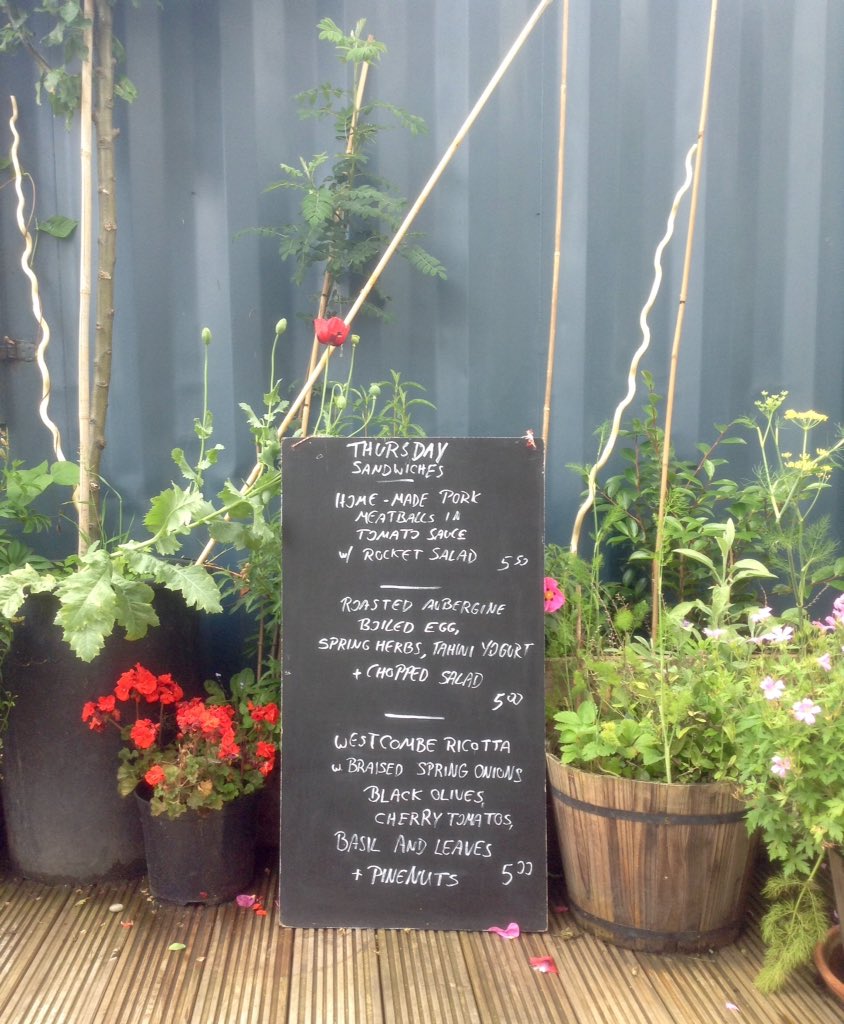 THURSDAY
SANDWICHES
HOME-MADE PORK
MEATBALLS IN
TOMATO SAUCE
w/ ROCKET SALAD 5 50
ROASTED AUBERGINE
BOILED EGG,
SPRING HERBS, TAHINI YOGURT
+ CHOPPED SALAD
5 00
WESTCOMBE RICOTTA
w BRAISED SPRING ONIONS
BLACK OLIVES,
CHERRY TOMATOS,
BASIL AND LEAVES
+ PINENUTS 5 00